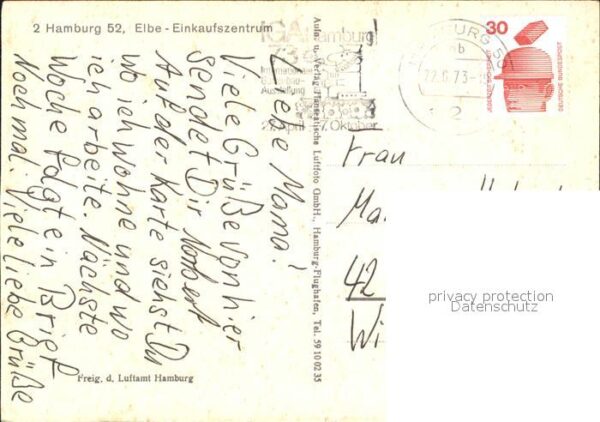 2 Hamburg 52, Elbe - Einkaufszentrum
IGA Hamburg
73
Internationale
Gartenbau-
Ausstellung
27. April - 7. Oktober
HAMBURG 50
mb
22.6.73
2
30
DEUTSCHE BUNDESPOST
Liebe Mama!
Viele Grüße von hier
sendet Dir Norbert
Auf der Karte siehst Du
wo ich wohne und wo
ich arbeite. Nächste
Woche folgt ein Brief
Noch mal. Viele liebe Grüße
Aufn. u. Verlag Hanseatische Luftfoto GmbH., Hamburg-Flughafen, Tel. 59 10 02 35
Frau
Ma
42
Wi
privacy protection
Datenschutz
Freig. d. Luftamt Hamburg